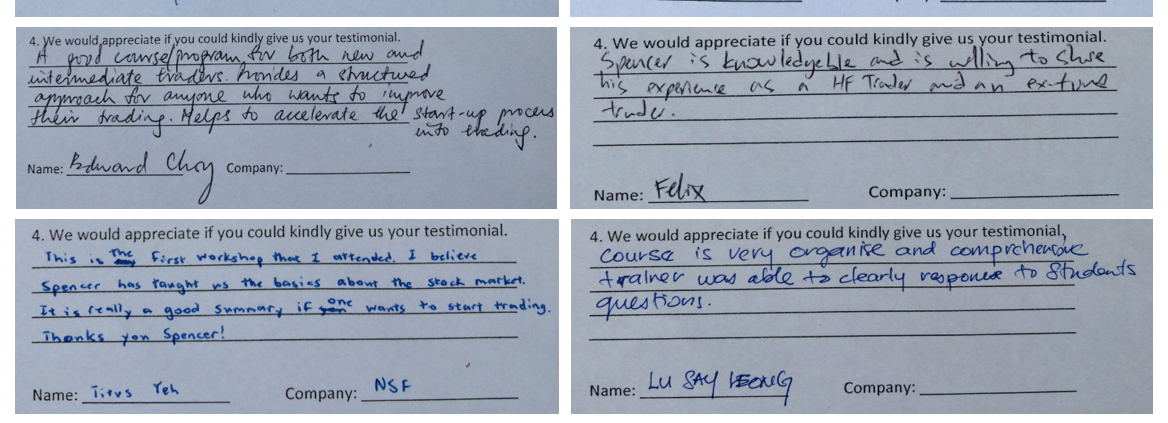 4. We would appreciate if you could kindly give us your testimonial.
A good course/program for both new and
intermediate traders. Provides a structured
approach for anyone who wants to improve
their trading. Helps to accelerate the start-up process
into trading.
Name: Edward Choy Company:
4. We would appreciate if you could kindly give us your testimonial.
Spencer is knowledgeable and is willing to share
his experience as a HF Trader and an ex-fund
trader.
Name: Felix Company:
4. We would appreciate if you could kindly give us your testimonial.
This is the first workshop that I attended. I believe
Spencer has taught us the basics about the stock market.
It is really a good summary if one wants to start trading.
Thanks you Spencer!
Name: Titus Yeh Company: NSF
4. We would appreciate if you could kindly give us your testimonial,
Course is very organise and comprehensive
trainer was able to clearly response to students
questions.
Name: LU SAY LEONG Company: